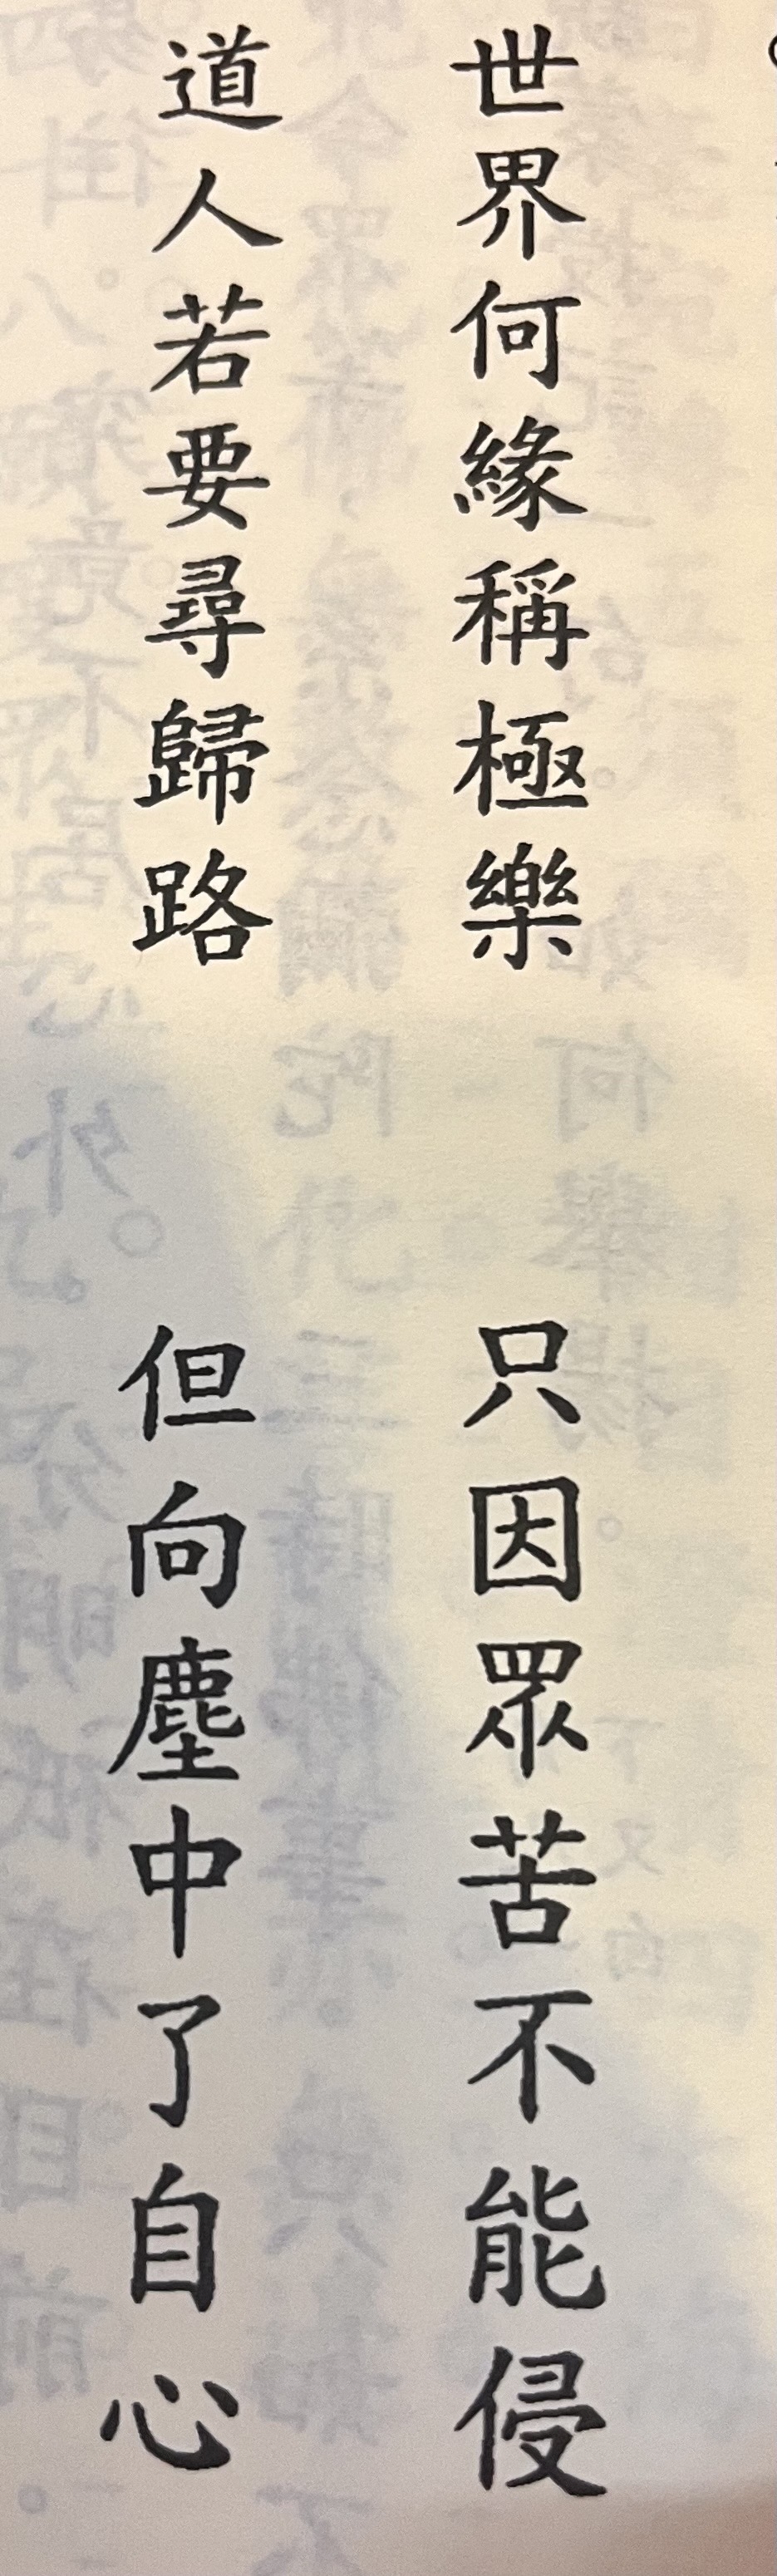 世界何緣稱極樂　只因眾苦不能侵
道人若要尋歸路　但向塵中了自心